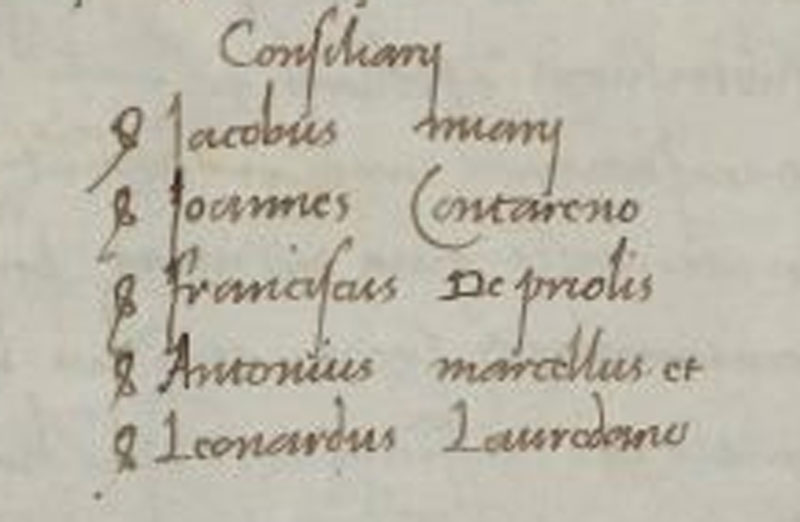 Consiliarij
Jacobus
Joannes Contareno
Franciscus De priolis
Antonius marcellus et
Leonardus Lauredano